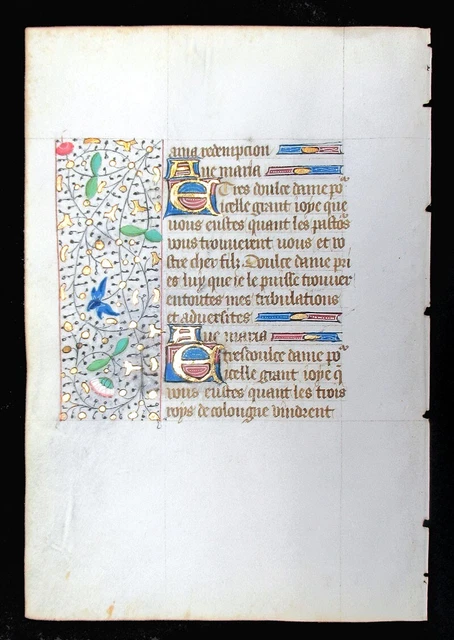 ama redempcion
Aue maria
E Tres doulce dame po
icelle grant ioye que
uous eustes quant les pastos
uous trouuerent uous et vo
stre cher filz. Doulce dame pri
es luy que ie le puisse trouuer
entoutes mes tribulations
et aduersites
Aue maria
E tresdoulce dame po
icelle grant ioye q
uous eustes quant les trois
roys de colougne vindrent